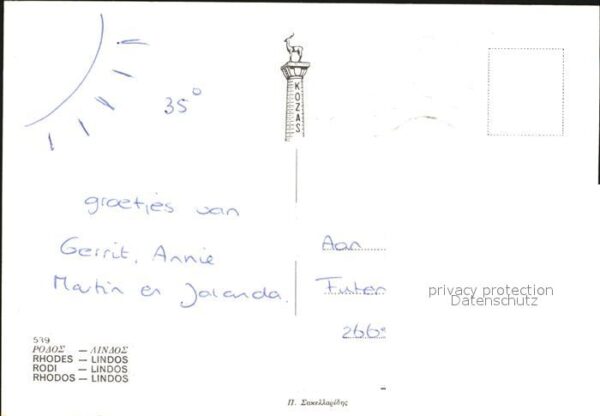 35°
KOZAS
groetjes van
Gerrit, Annie
Martin en Jolanda.
Aan
privacy protection
Datenschutz
539
ΡΟΔΟΣ — ΛΙΝΔΟΣ
RHODES — LINDOS
RODI — LINDOS
RHODOS — LINDOS
Π. Σακελλαρίδης